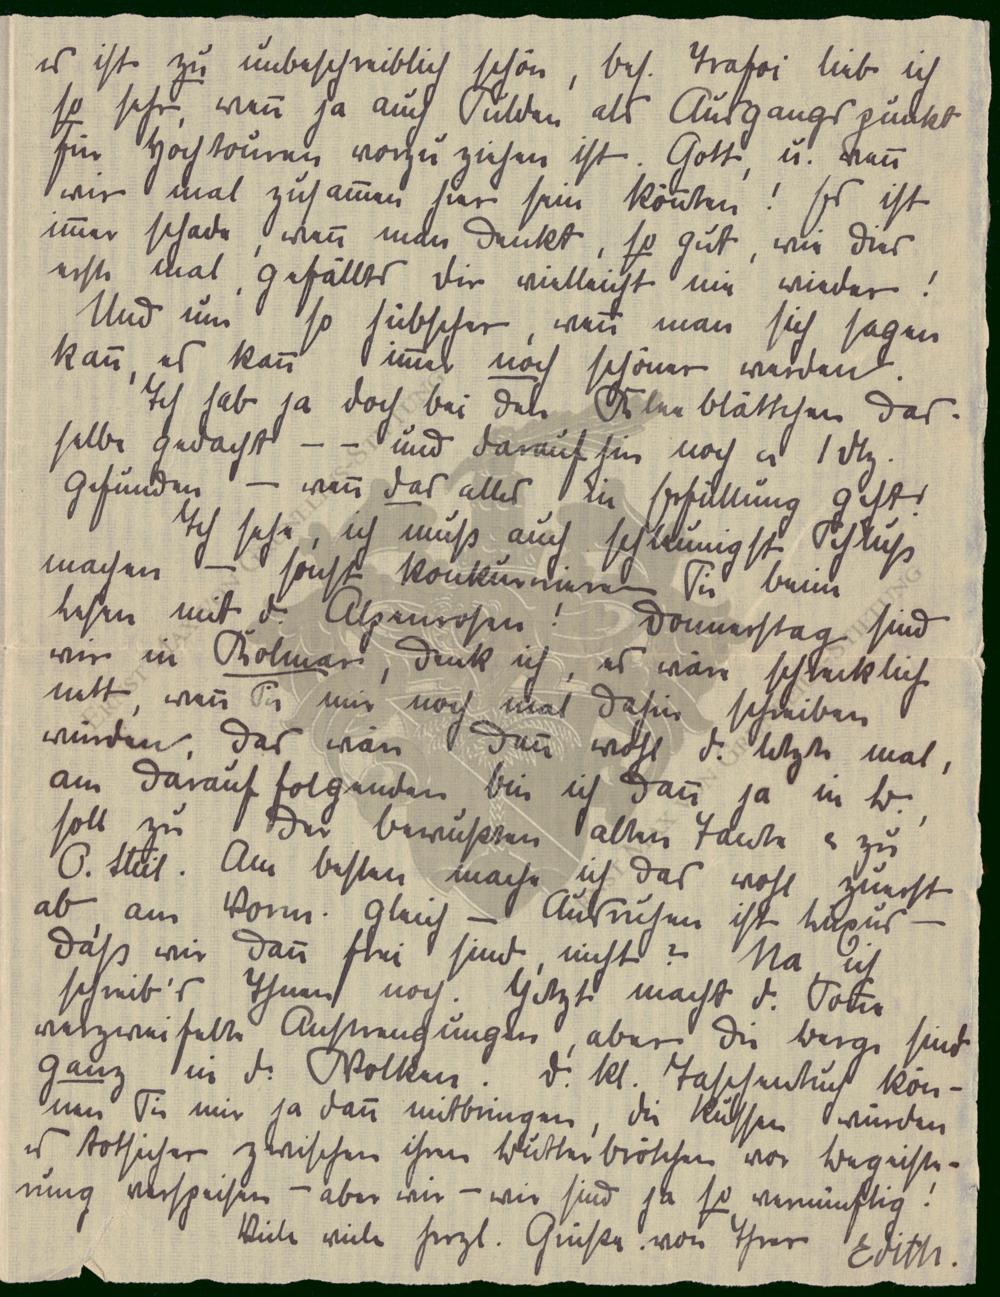 es ist zu unbeschreiblich schön, bes. Trafoi lieb ich
so sehr, weñ ja auch Sulden als Ausgangspunkt
für Hochtouren vorzuziehen ist. Gott, u. weñ
wir mal zusam̄en hier sein kön̄ten! Es ist
im̄er schade, weñ man denkt, so gut, wie dies
erste mal, gefällts dir vielleicht nie wieder!
Und um so hübscher, weñ man sich sagen
kañ, es kañ im̄er noch schöner werden.
Ich hab ja doch bei den Kleeblättchen das-
selbe gedacht -- und daraufhin noch 1 dtz.
gefunden - weñ das alles in Erfüllung geht!
Ich sehe, ich muß auch schleunigst Schluß
machen - sonst konkurrieren Sie beim
Lesen mit d. Alpenrosen! Donnerstag sind
wir in Kolmar, denk ich, es wäre schrecklich
nett, weñ Sie mir noch mal dahin schreiben
würden, das wär dañ wohl d. letzte mal,
am darauf folgenden bin ich dañ ja in B.,
soll zu der bewußten alten Tante u zu
O. Am besten mache ich das wohl zuerst
ab am Vorm. gleich - Ausruhen ist Luxus -
daß wir dañ frei sind, nicht? Na ich
schreib's Ihnen noch. Jetzt macht d. Son̄e
verzweifelte Anstrengungen, aber die Berge sind
ganz in d. Wolken. D. kl. Taschentuch kön-
nen Sie mir ja dañ mitbringen, die würden
es totsicher zwischen ihren Butterbrötchen vor Begeiste-
rung verspeisen - aber wir - wir sind ja so vernünftig!
Viele viele herzl. Grüße von Ihrer Edith.